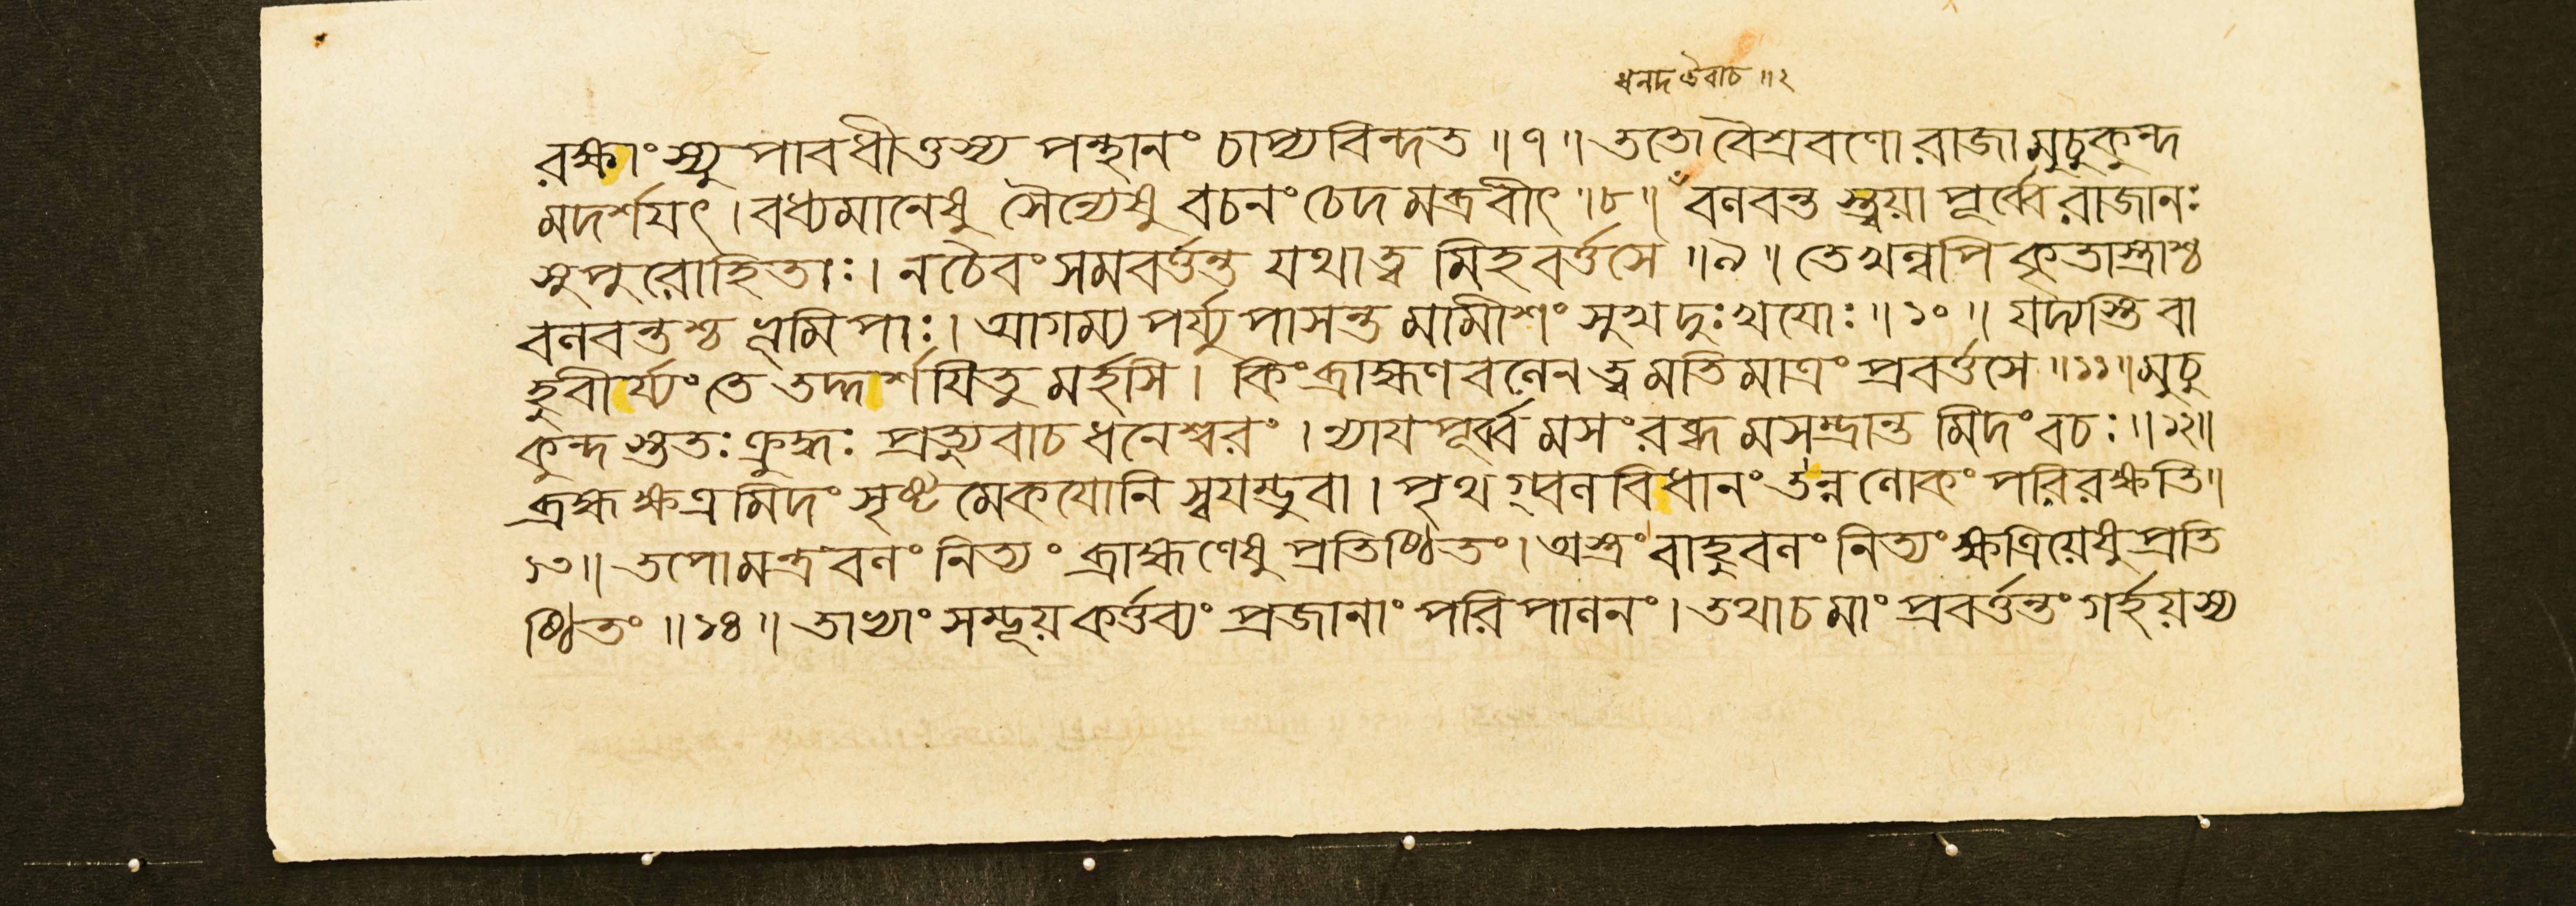 ধনদ উবাচ ॥ ২
রক্ষাংস্যুপাবধীত্তস্য পন্থানং চাপ্যবিন্দত ॥ ৭ ॥ ততো বৈশ্রবণো রাজা মুচুকুন্দ
মদর্শযৎ । বধ্যমানেষু সৈন্যেষু বচনং চেদমব্রবীৎ ॥ ৮ ॥ বলবন্তস্ত্বয়া পূর্ব্বে রাজানঃ
সুপুরোহিতাঃ । নচৈবং সমবর্ত্তন্ত যথাত্ব মিহবর্ত্তসে ॥ ৯ ॥ তেখল্বপি কৃতাস্ত্রাশ্চ
বলবন্তশ্চ ভূমিপাঃ । আগম্য পর্য্যুপাসন্ত মামীশং সুখদুঃখযোঃ ॥ ১০ ॥ যদ্যস্তি বা
হুবীর্য্যং তে তদ্দর্শযিতু মর্হসি । কিং ব্রাহ্মণবলেন ত্বমতিমাত্রং প্রবর্ত্তসে ॥ ১১ ॥ মুচু
কুন্দস্ততঃ ক্রুদ্ধঃ প্রত্যুবাচ ধনেশ্বরং । ন্যাযপূর্ব্বমসংরব্ধমসম্ভ্রান্তমিদং বচঃ ॥ ১২ ॥
ব্রহ্মক্ষত্রমিদং সৃষ্টমেকযোনি স্বযম্ভুবা । পৃথগ্বলবিধানং তন্ন লোকং পরিরক্ষতি ॥
১৩ ॥ তপোমন্ত্রবলং নিত্যং ব্রাহ্মণেষু প্রতিষ্ঠিতং । অস্ত্রবাহুবলং নিত্যং ক্ষত্রিয়েষু প্রতি
ষ্ঠিতং ॥ ১৪ ॥ তাভ্যাং সম্ভূয় কর্ত্তব্যং প্রজানাং পরিপালনং । তথাচ মাং প্রবর্ত্তন্তং গর্হয়স্য